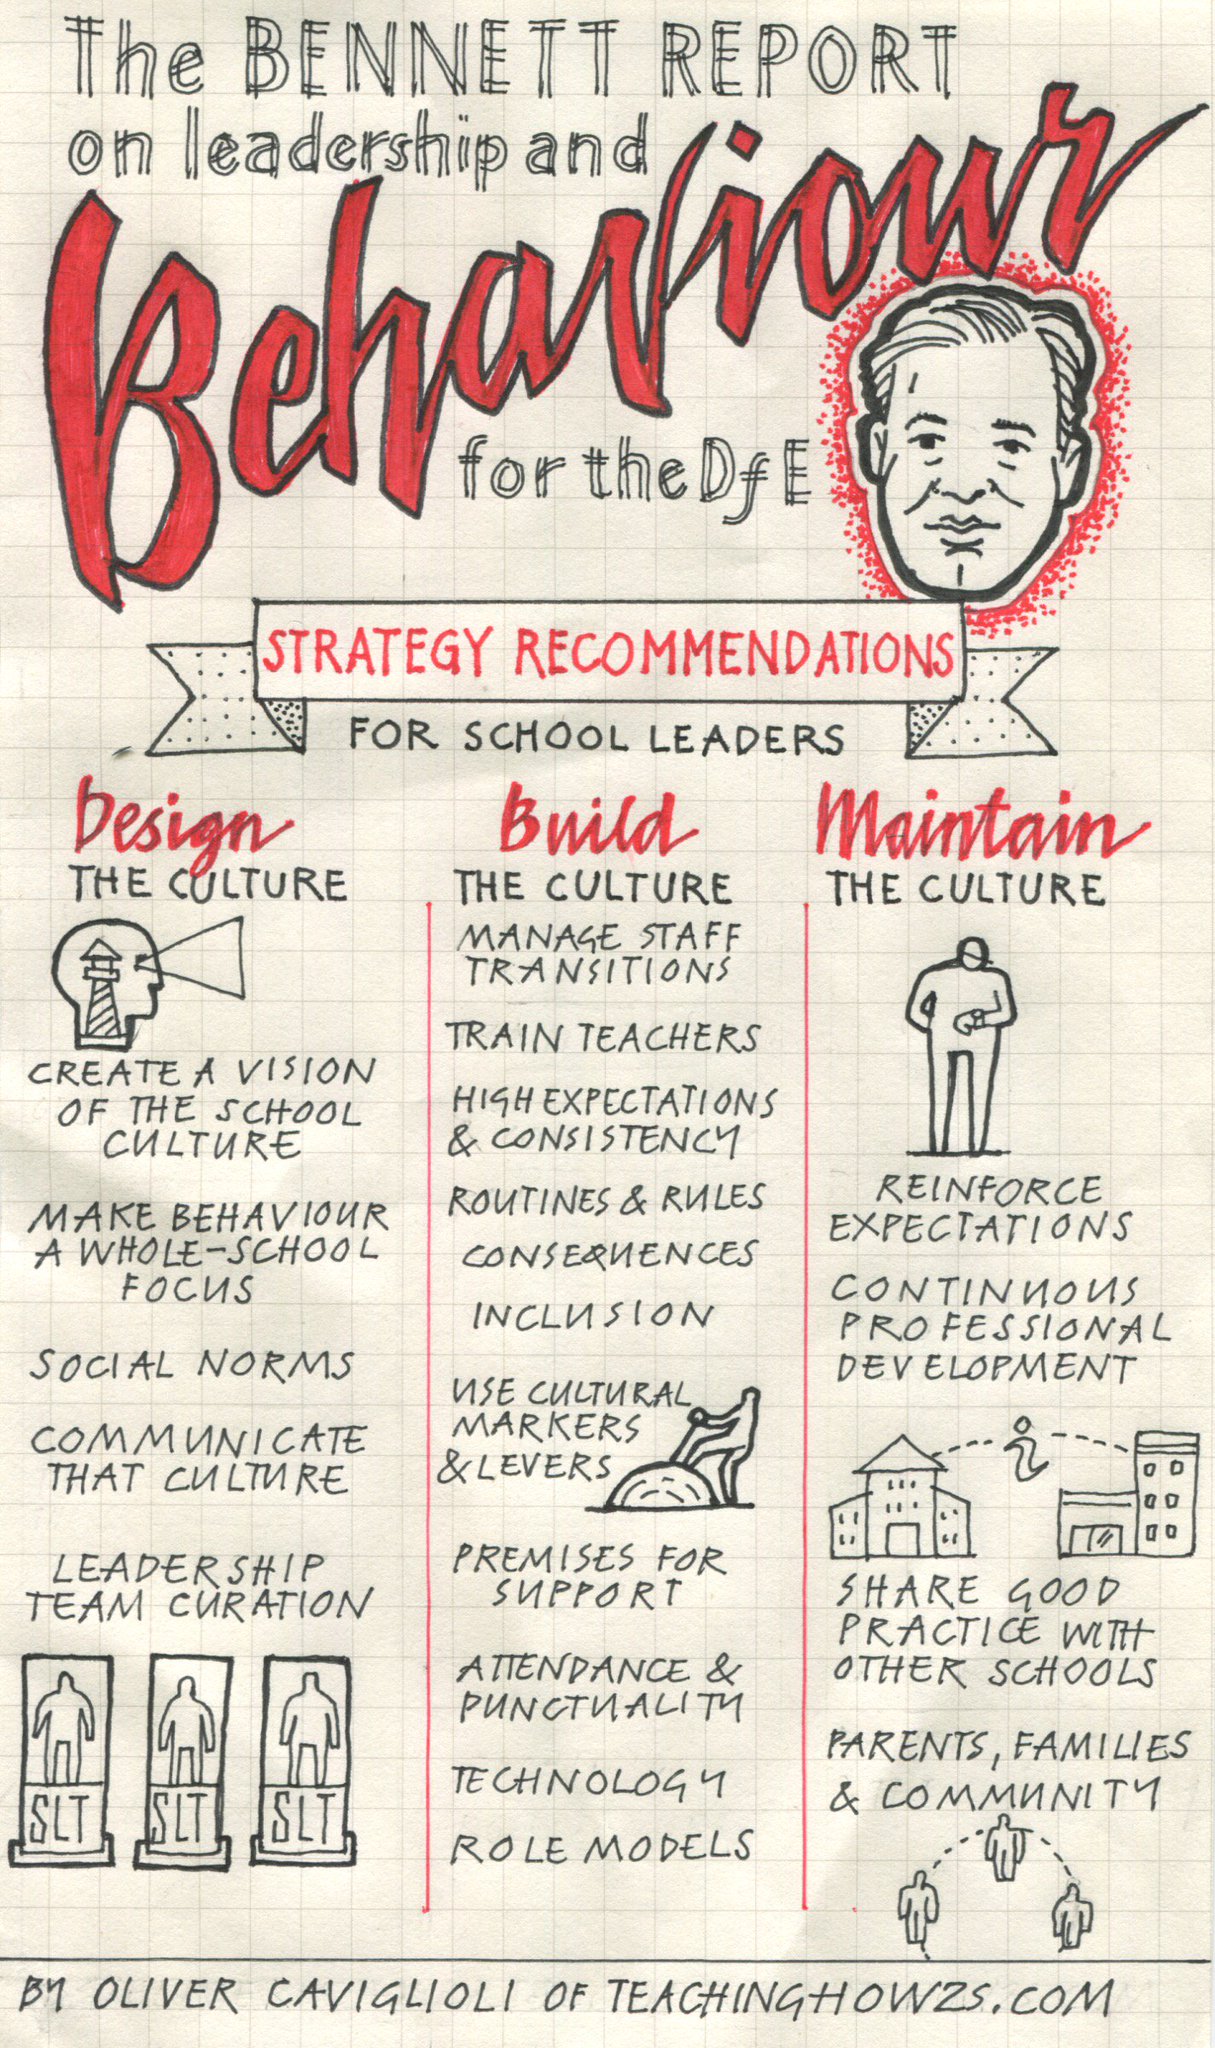 The BENNETT REPORT
on leadership and
Behaviour
for the DfE
STRATEGY RECOMMENDATIONS
FOR SCHOOL LEADERS
Design
THE CULTURE
CREATE A VISION
OF THE SCHOOL
CULTURE
MAKE BEHAVIOUR
A WHOLE-SCHOOL
FOCUS
SOCIAL NORMS
COMMUNICATE
THAT CULTURE
LEADERSHIP
TEAM CURATION
SLT
SLT
SLT
Build
THE CULTURE
MANAGE STAFF
TRANSITIONS
TRAIN TEACHERS
HIGH EXPECTATIONS
& CONSISTENCY
ROUTINES & RULES
CONSEQUENCES
INCLUSION
USE CULTURAL
MARKERS
& LEVERS
PREMISES FOR
SUPPORT
ATTENDANCE &
PUNCTUALITY
TECHNOLOGY
ROLE MODELS
Maintain
THE CULTURE
REINFORCE
EXPECTATIONS
CONTINUOUS
PROFESSIONAL
DEVELOPMENT
i
SHARE GOOD
PRACTICE WITH
OTHER SCHOOLS
PARENTS, FAMILIES
& COMMUNITY
BY OLIVER CAVIGLIOLI OF TEACHINGHOW2S.COM